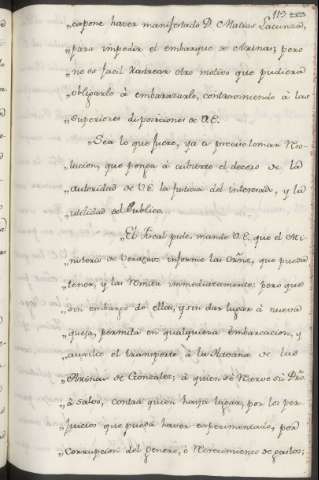 113
"expone haver manifestado D. Mateo Lacunza,
"para impedir el embarque de Arinas; pero
"no es facil rastrear otro motivo que pudiera
"obligarlo à embarazarlo, contraviniendo à las
"Superiores disposiciones de V.E.
"Sea lo que fuere, ya es preciso tomar Reso-
"lucion, que ponga à cubierto el decoro de la
"autoridad de V.E. la Justicia del interesado, y la
"utilidad del Publico.
"El Fiscal pide, mande V.E. que el Mi-
"nistro de Veracruz informe las que pueda
"tener, y las Remita inmediatamente; pero que
"sin embargo de ellas, y sin dar lugar à nueva
"queja, permita en qualquiera embarcacion, y
"auxilie el transporte à la Havana de las
"Arinas de Gonzales; à quien se Reserve su Dro.
"à salvo, contra quien haya lugar, por los per-
"juicios que pueda haver experimentado, por
"corrupcion del genero, ò Recrecimiento de gastos;